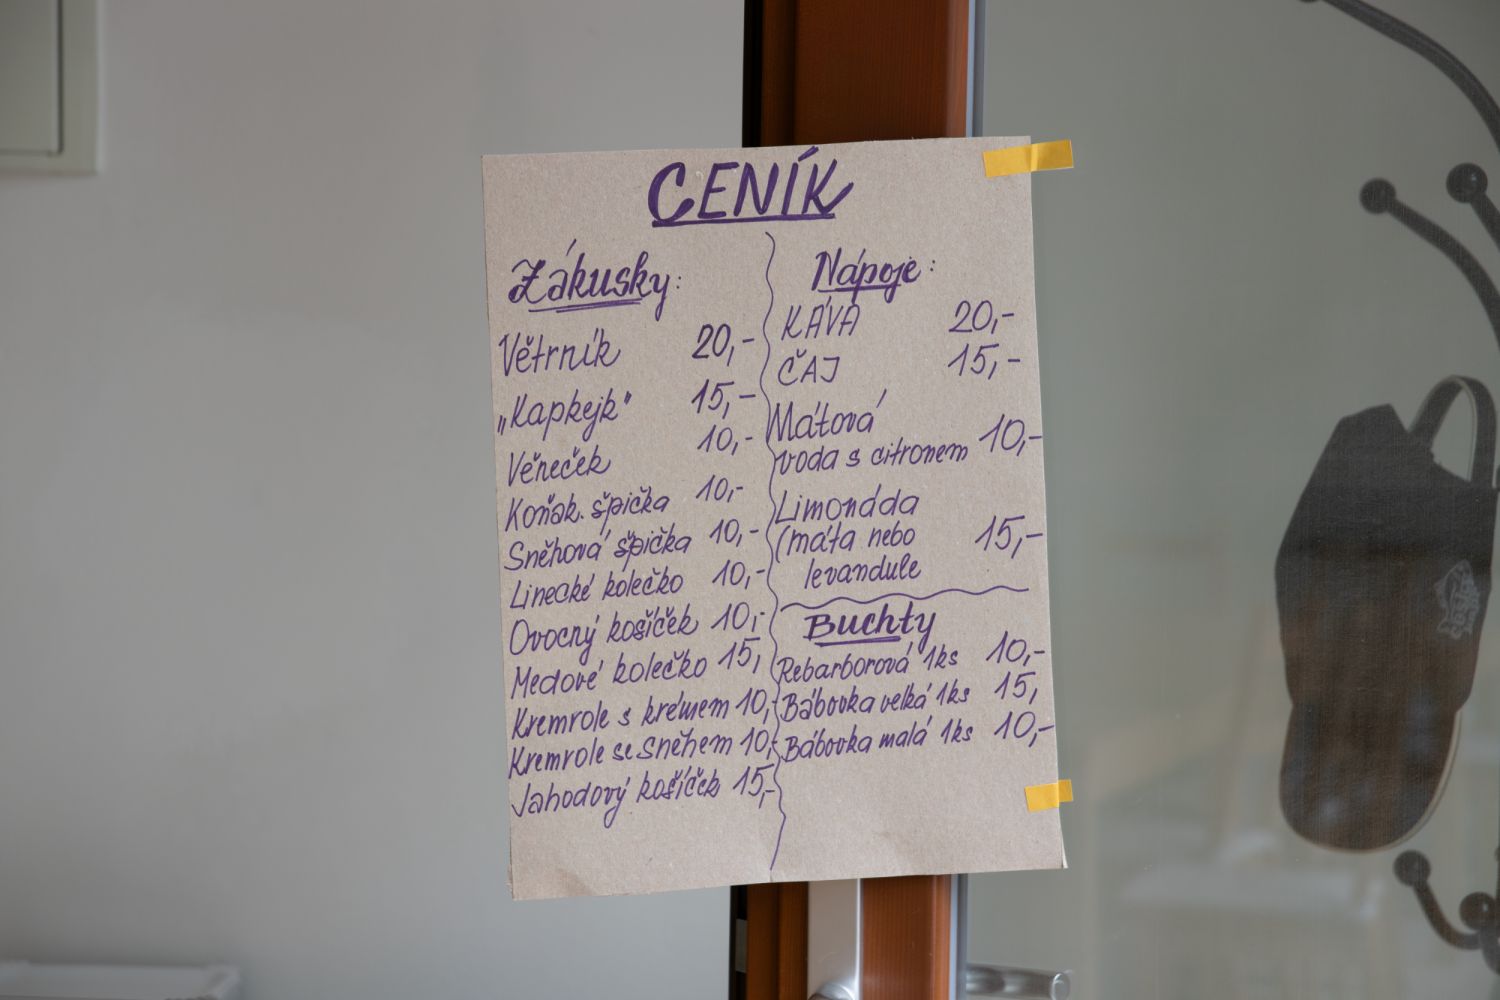 CENÍK
Zákusky:
Větrník 20,-
„Kapkejk" 15,-
Věneček 10,-
Koňak. špička 10,-
Sněhová špička 10,-
Linecké kolečko 10,-
Ovocný košíček 10,-
Medové kolečko 15,
Kremrole s krémem 10,-
Kremrole se sněhem 10,-
Jahodový košíček 15,-
Nápoje:
KÁVA 20,-
ČAJ 15,-
Mátová
voda s citronem 10,-
Limonáda
(máta nebo 15,-
levandule
Buchty
Rebarborová 1ks 10,-
Bábovka velká 1ks 15,
Bábovka malá 1ks 10,-